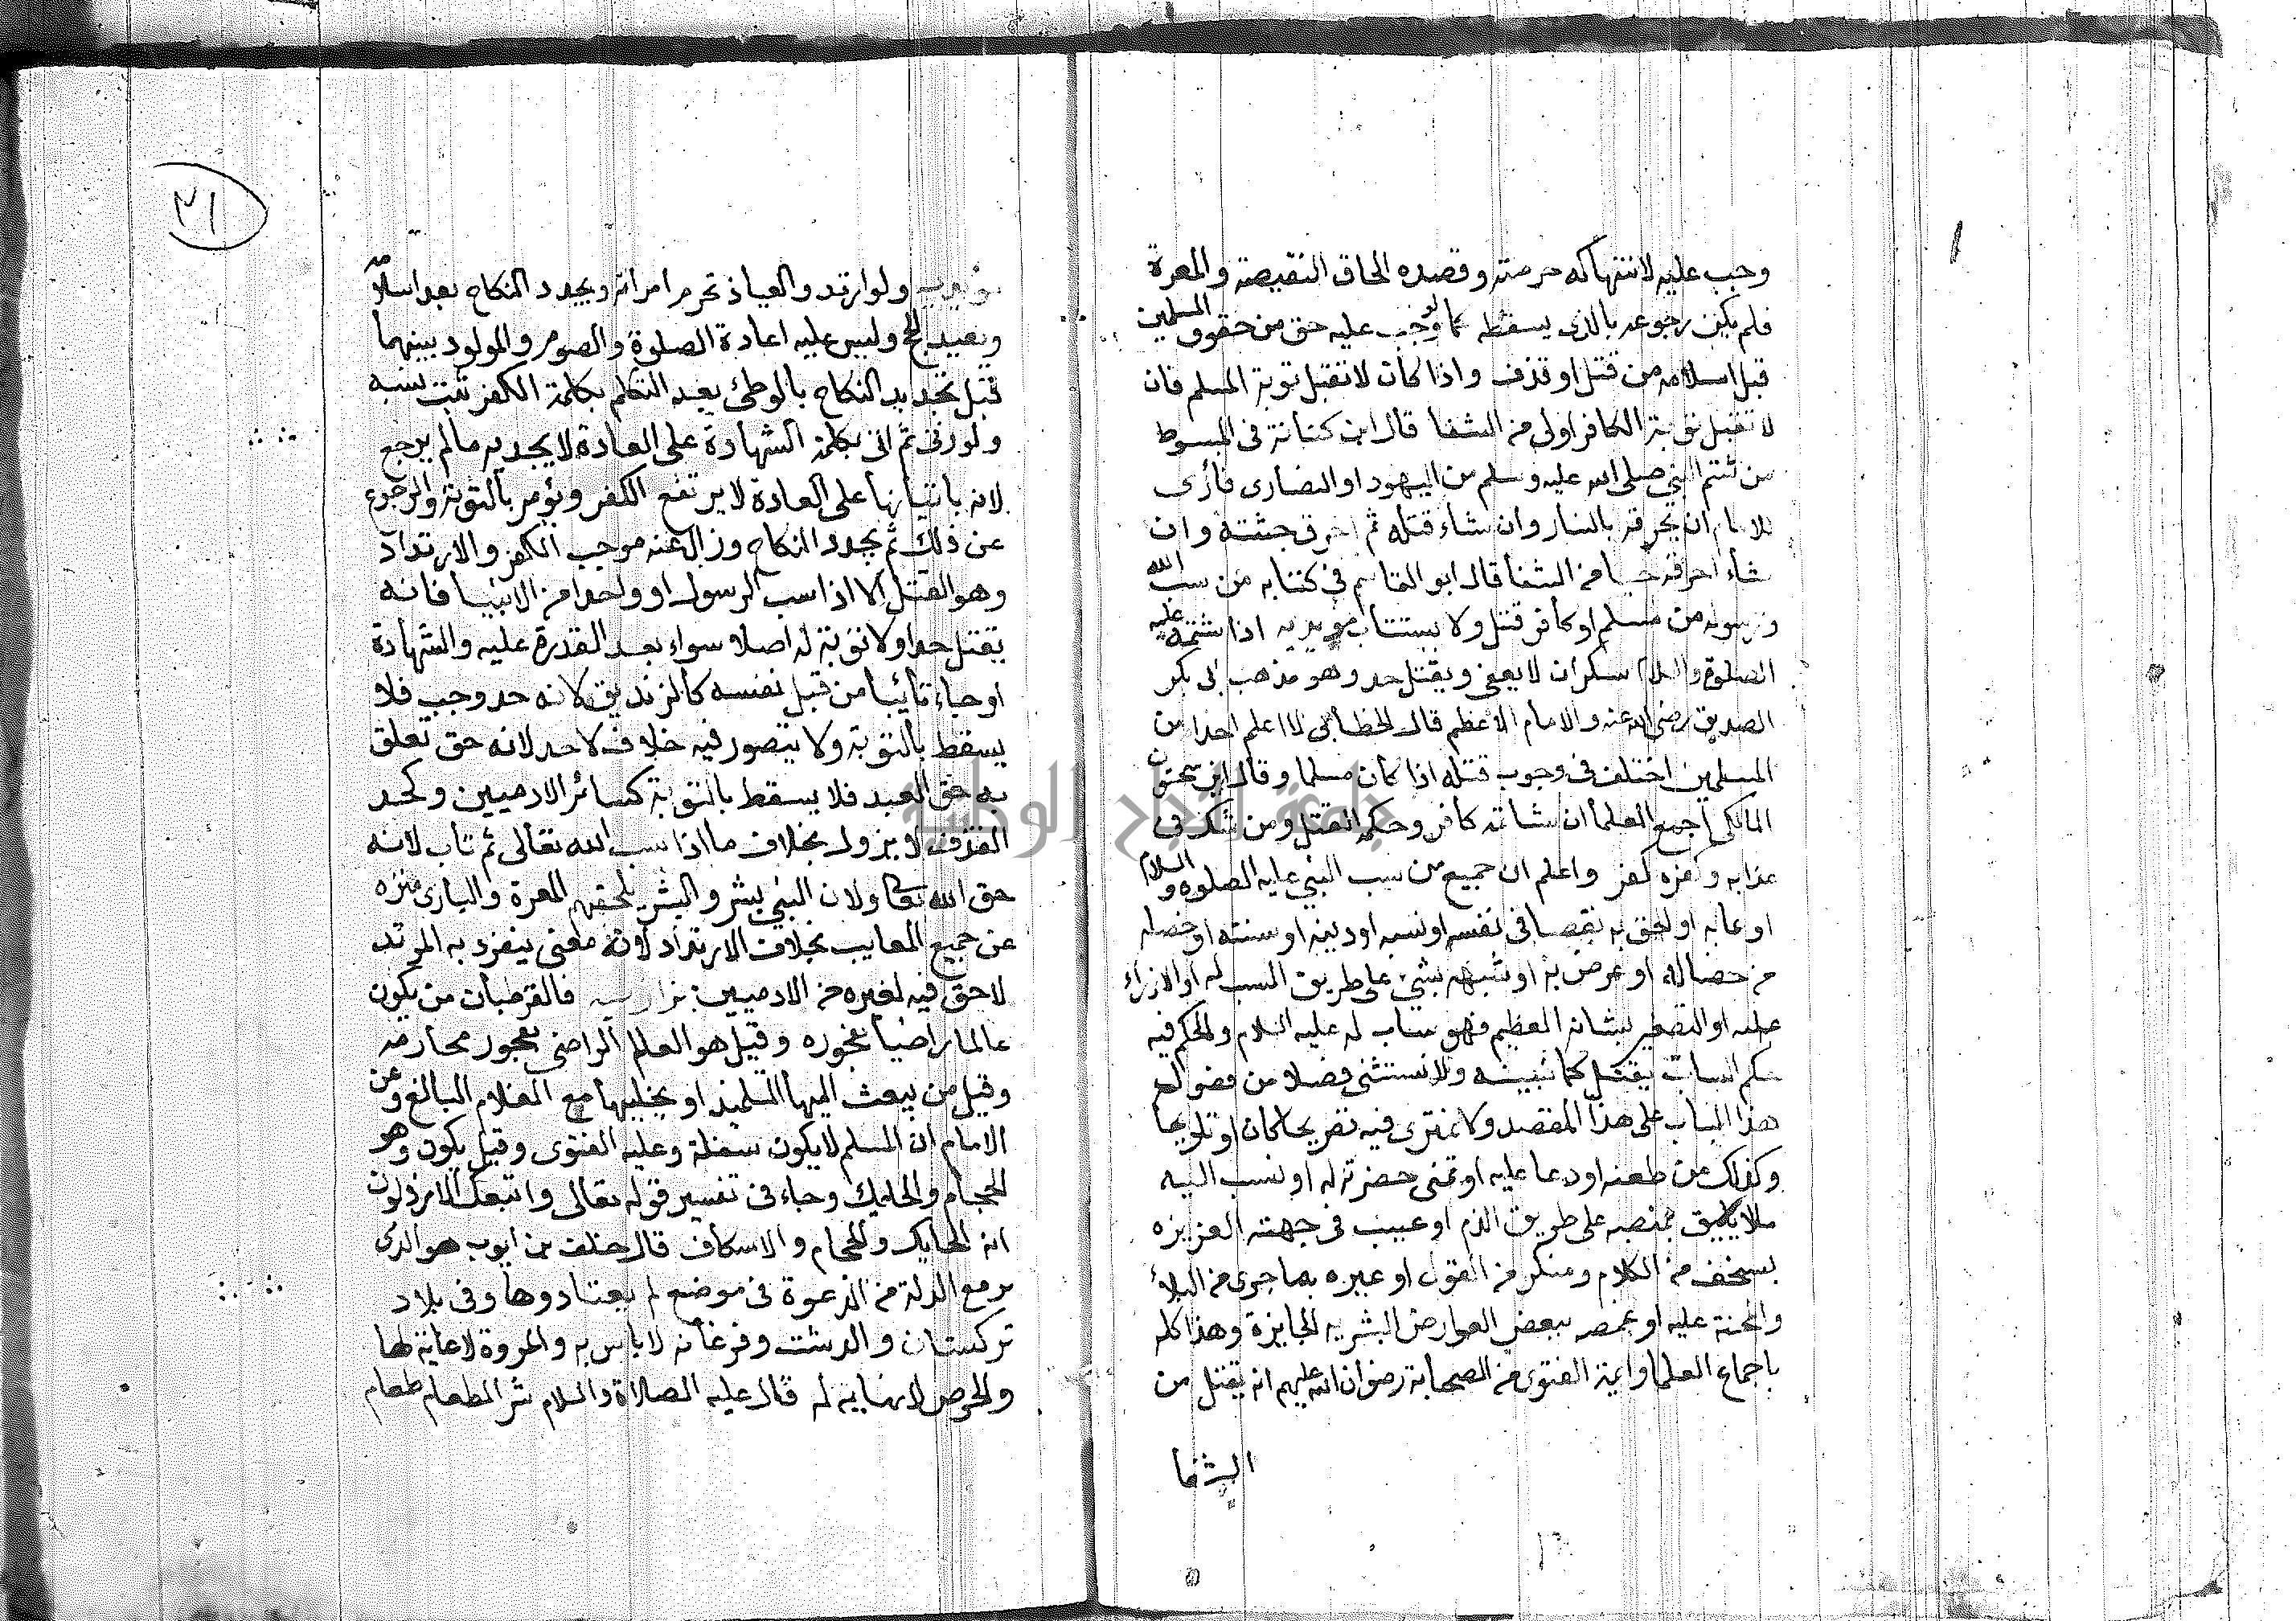 وجب عليه لانتهاكه حرمته وقصده الحاق النقيصة والمعرة
فلم يكن رجوعه بالذى يسقطه كما لو وجب عليه حق من حقوق المسلمين
قبل اسلامه من قتل او قذف واذا كان لا تقبل توبة المسلم فان
لا تقبل توبة الكافر اولى من الشفا قال ابن كنانة فى المبسوط
من شتم النبي صلى الله عليه وسلم من اليهود او النصارى فأرى
للامام ان يحرقه بالنار وان شاء قتله ثم احرق جثته وان
شاء احرقه حيا من الشفا قال ابو القاسم فى كتابه من سب الله
ورسوله من مسلم او كافر قتل ولا يستتاب اذا شتمه عليه
الصلوة والسلام سكران لا يعفى ويقتل حد وهو مذهب ابى بكر
الصديق رضى الله عنه والامام الاعظم قال الخطابى لا اعلم احدا من
المسلمين اختلف فى وجوب قتله اذا كان مسلما وقال ابن سحنون
المالكى اجمع العلما ان شاتمه كافر وحكمه القتل ومن شك فى
عذابه وكفره كفر واعلم ان جميع من سب النبي عليه الصلوة والسلام
او عابه او لحق به نقصا فى نفسه او نسبه او دينه او سنته او خصلة
من خصاله او عرض به او شبهه بشئ على طريق السب له او الازراء
عليه او التصغير لشانه العظيم فهو ساب له عليه السلام والحكم فيه
حكم الساب يقتل كما نبينه ولا نستثنى فصلا من فصول
هذا الباب على هذا المقصد ولا نمترى فيه تصريحا كان او تلويحا
وكذلك من طعنه او دعا عليه او تمنى مضرة له او نسب اليه
ما لا يليق بمنصبه على طريق الذم او عبث فى جهته العزيزه
بسخف من الكلام ومنكر من القول او عيره بما جرى من البلاء
والمحنة عليه او غمصه ببعض العوارض البشريه الجايزة وهذا كله
باجماع العلما وايمة الفتوى من الصحابة رضوان الله عليهم انه يقتل من
الشفا
٢١
ولو ارتد والعياذ تحرم امراته ويجدد النكاح بعد اسلامه
ويعيد الحج وليس عليه اعادة الصلوة والصوم والمولود بينهما
قبل تجديد النكاح بالوطئ بعد التكلم بكلمة الكفر ثبت نسبه
ثم اتى بكلمة الشهادة على العادة لا يجديه ما لم يرجع
لانه باتيانها على العادة لا يرتفع الكفر ويؤمر بالتوبة والرجوع
عن ذلك ثم يجدد النكاح وزال عنه موجب الكفر والارتداد
وهو القتل الا اذا سب الرسول او واحدا من الانبيا فانه
يقتل حدا ولا توبة له اصلا سواء بعد القدرة عليه والشهادة
او جاء تايبا من قبل نفسه كالزنديق لانه حد وجب فلا
يسقط بالتوبة ولا يتصور فيه خلاف لاحد لانه حق تعلق
به حق العبد فلا يسقط بالتوبة كسائر الادميين وكحد
القذف لا يزول بخلاف ما اذا سب الله تعالى ثم تاب لانه
حق الله تعا ولان النبي بشر والبشر يلحقهم المعرة والبارى منزه
عن جميع المعايب بخلاف الارتداد لانه معنى ينفرد به المرتد
لا حق فيه لغيره من الادميين بزازيه فالقرطبان من يكون
عالما راضيا بفجوره وقيل هو العالم الراضى بفجور محارمه
وقيل من يبعث اليها التلميذ او يخليها مع الغلام البالغ وعن
الامام ان المسلم لا يكون سفلة وعليه الفتوى وقيل يكون وهو
الحجام والحايك وجاء فى تفسير قوله تعالى واتبعك الارذلون
انه الحايك والحجام والاسكاف قال خلف بن ايوب هو الذى
يرفع الذلة من الدعوة فى موضع لم يعتادوها وفى بلاد
تركستان والدشت وفرغانه لا باس به والمروة لا غاية لها
والحرص لا نهاية له قال عليه الصلاة والسلام شر الطعام طعام
جامعة النجاح الوطنية